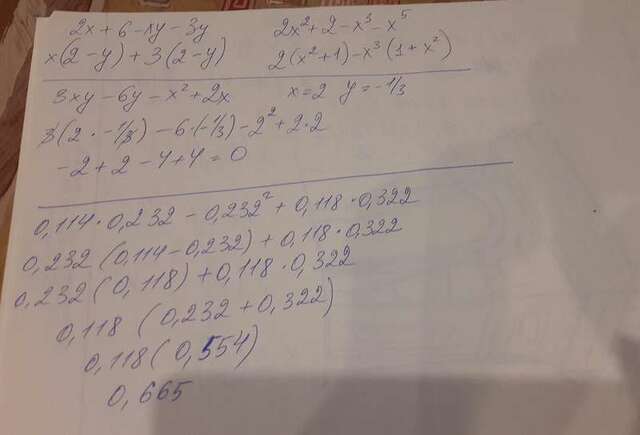 2x + 6 - xy - 3y
x(2 - y) + 3(2 - y)
2x² + 2 - x³ - x⁵
2(x² + 1) - x³(1 + x²)
3xy - 6y - x² + 2x x = 2 y = -1/3
3(2 · -1/3) - 6·(-1/3) - 2² + 2·2
-2 + 2 - 4 + 4 = 0
0,114 · 0,232 - 0,232² + 0,118 · 0,322
0,232 (0,114 - 0,232) + 0,118 · 0,322
0,232 (0,118) + 0,118 · 0,322
0,118 (0,232 + 0,322)
0,118 (0,554)
0,665